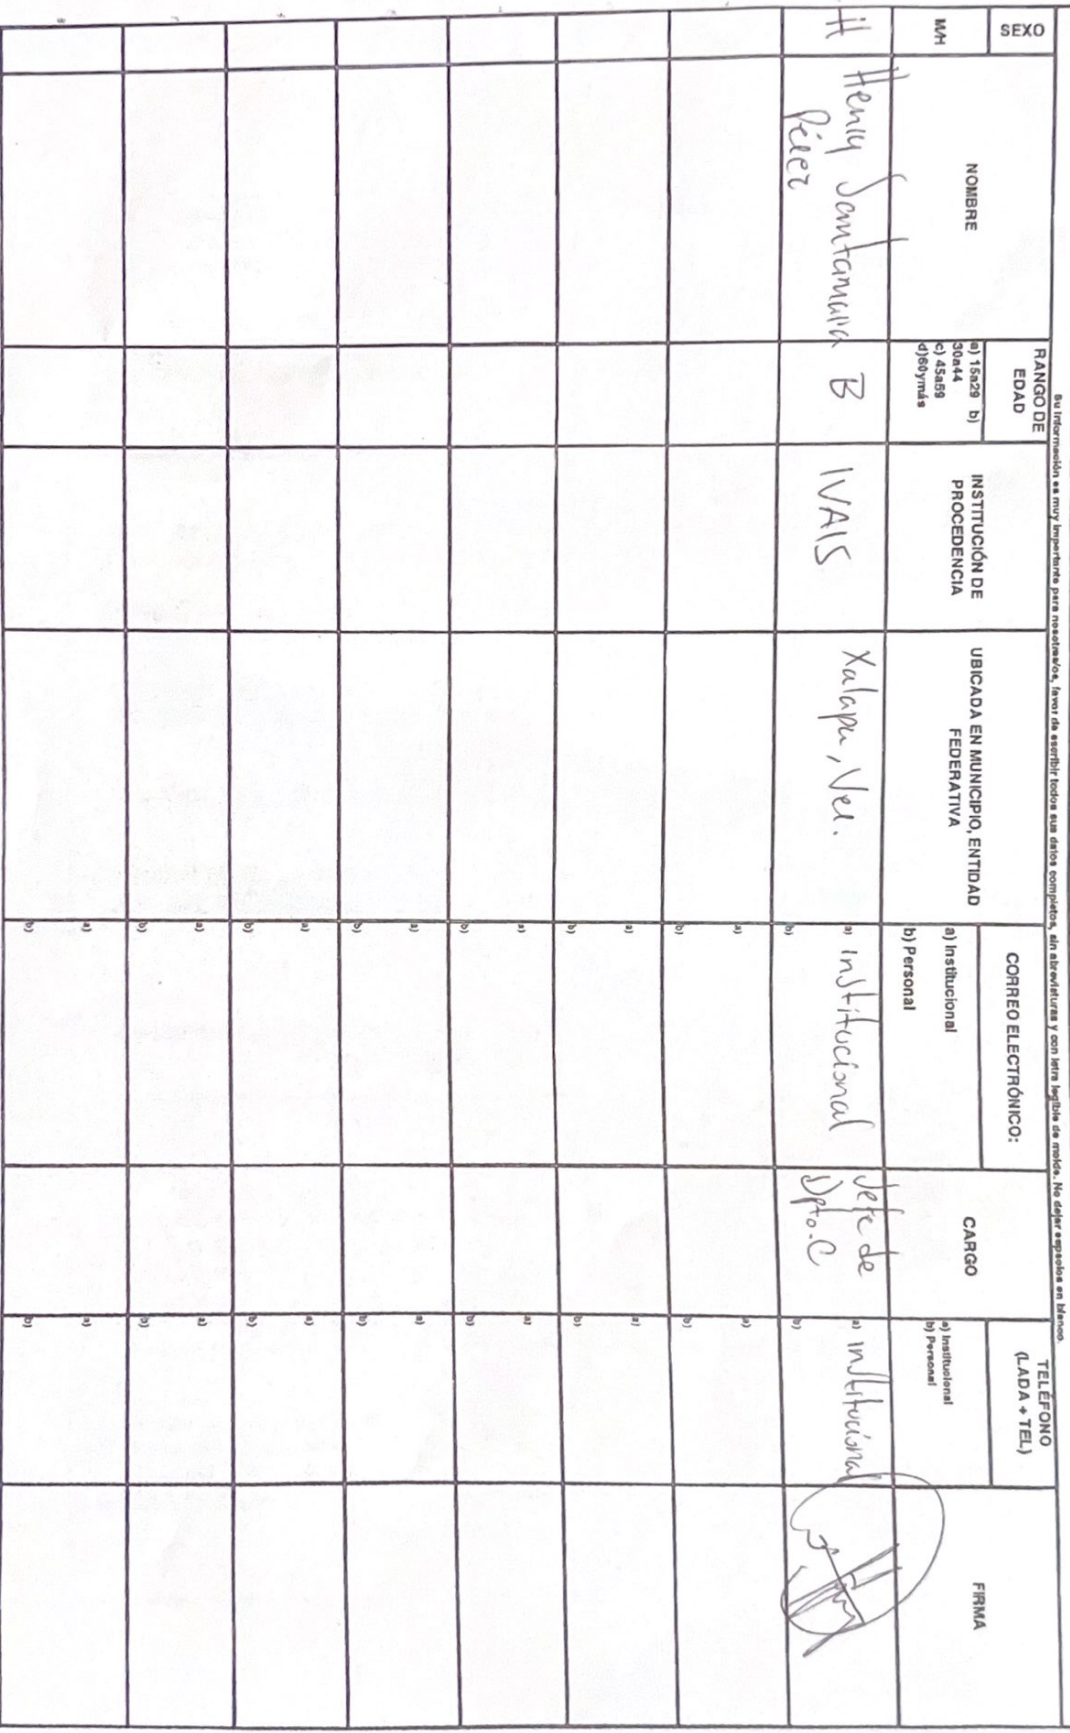 Su información es muy importante para nosotras/os, favor de escribir todos sus datos completos, sin abreviaturas y con letra legible de molde. No dejar espacios en blanco.
SEXO
M/H
NOMBRE
RANGO DE
EDAD
a) 15a29 b)
30a44
c) 45a59
d)60ymás
INSTITUCIÓN DE
PROCEDENCIA
UBICADA EN MUNICIPIO, ENTIDAD
FEDERATIVA
CORREO ELECTRÓNICO:
a) Institucional
b) Personal
CARGO
TELÉFONO
(LADA + TEL)
a) Institucional
b) Personal
FIRMA
H
Henry Santamaria
Pérez
B
IVAIS
Xalapa, Ver.
a) Institucional
b)
Jefe de
Dpto. C
a) institucional
b)
a)
b)
a)
b)
a)
b)
a)
b)
a)
b)
a)
b)
a)
b)
a)
b)
a)
b)
a)
b)
a)
b)
a)
b)
a)
b)
a)
b)